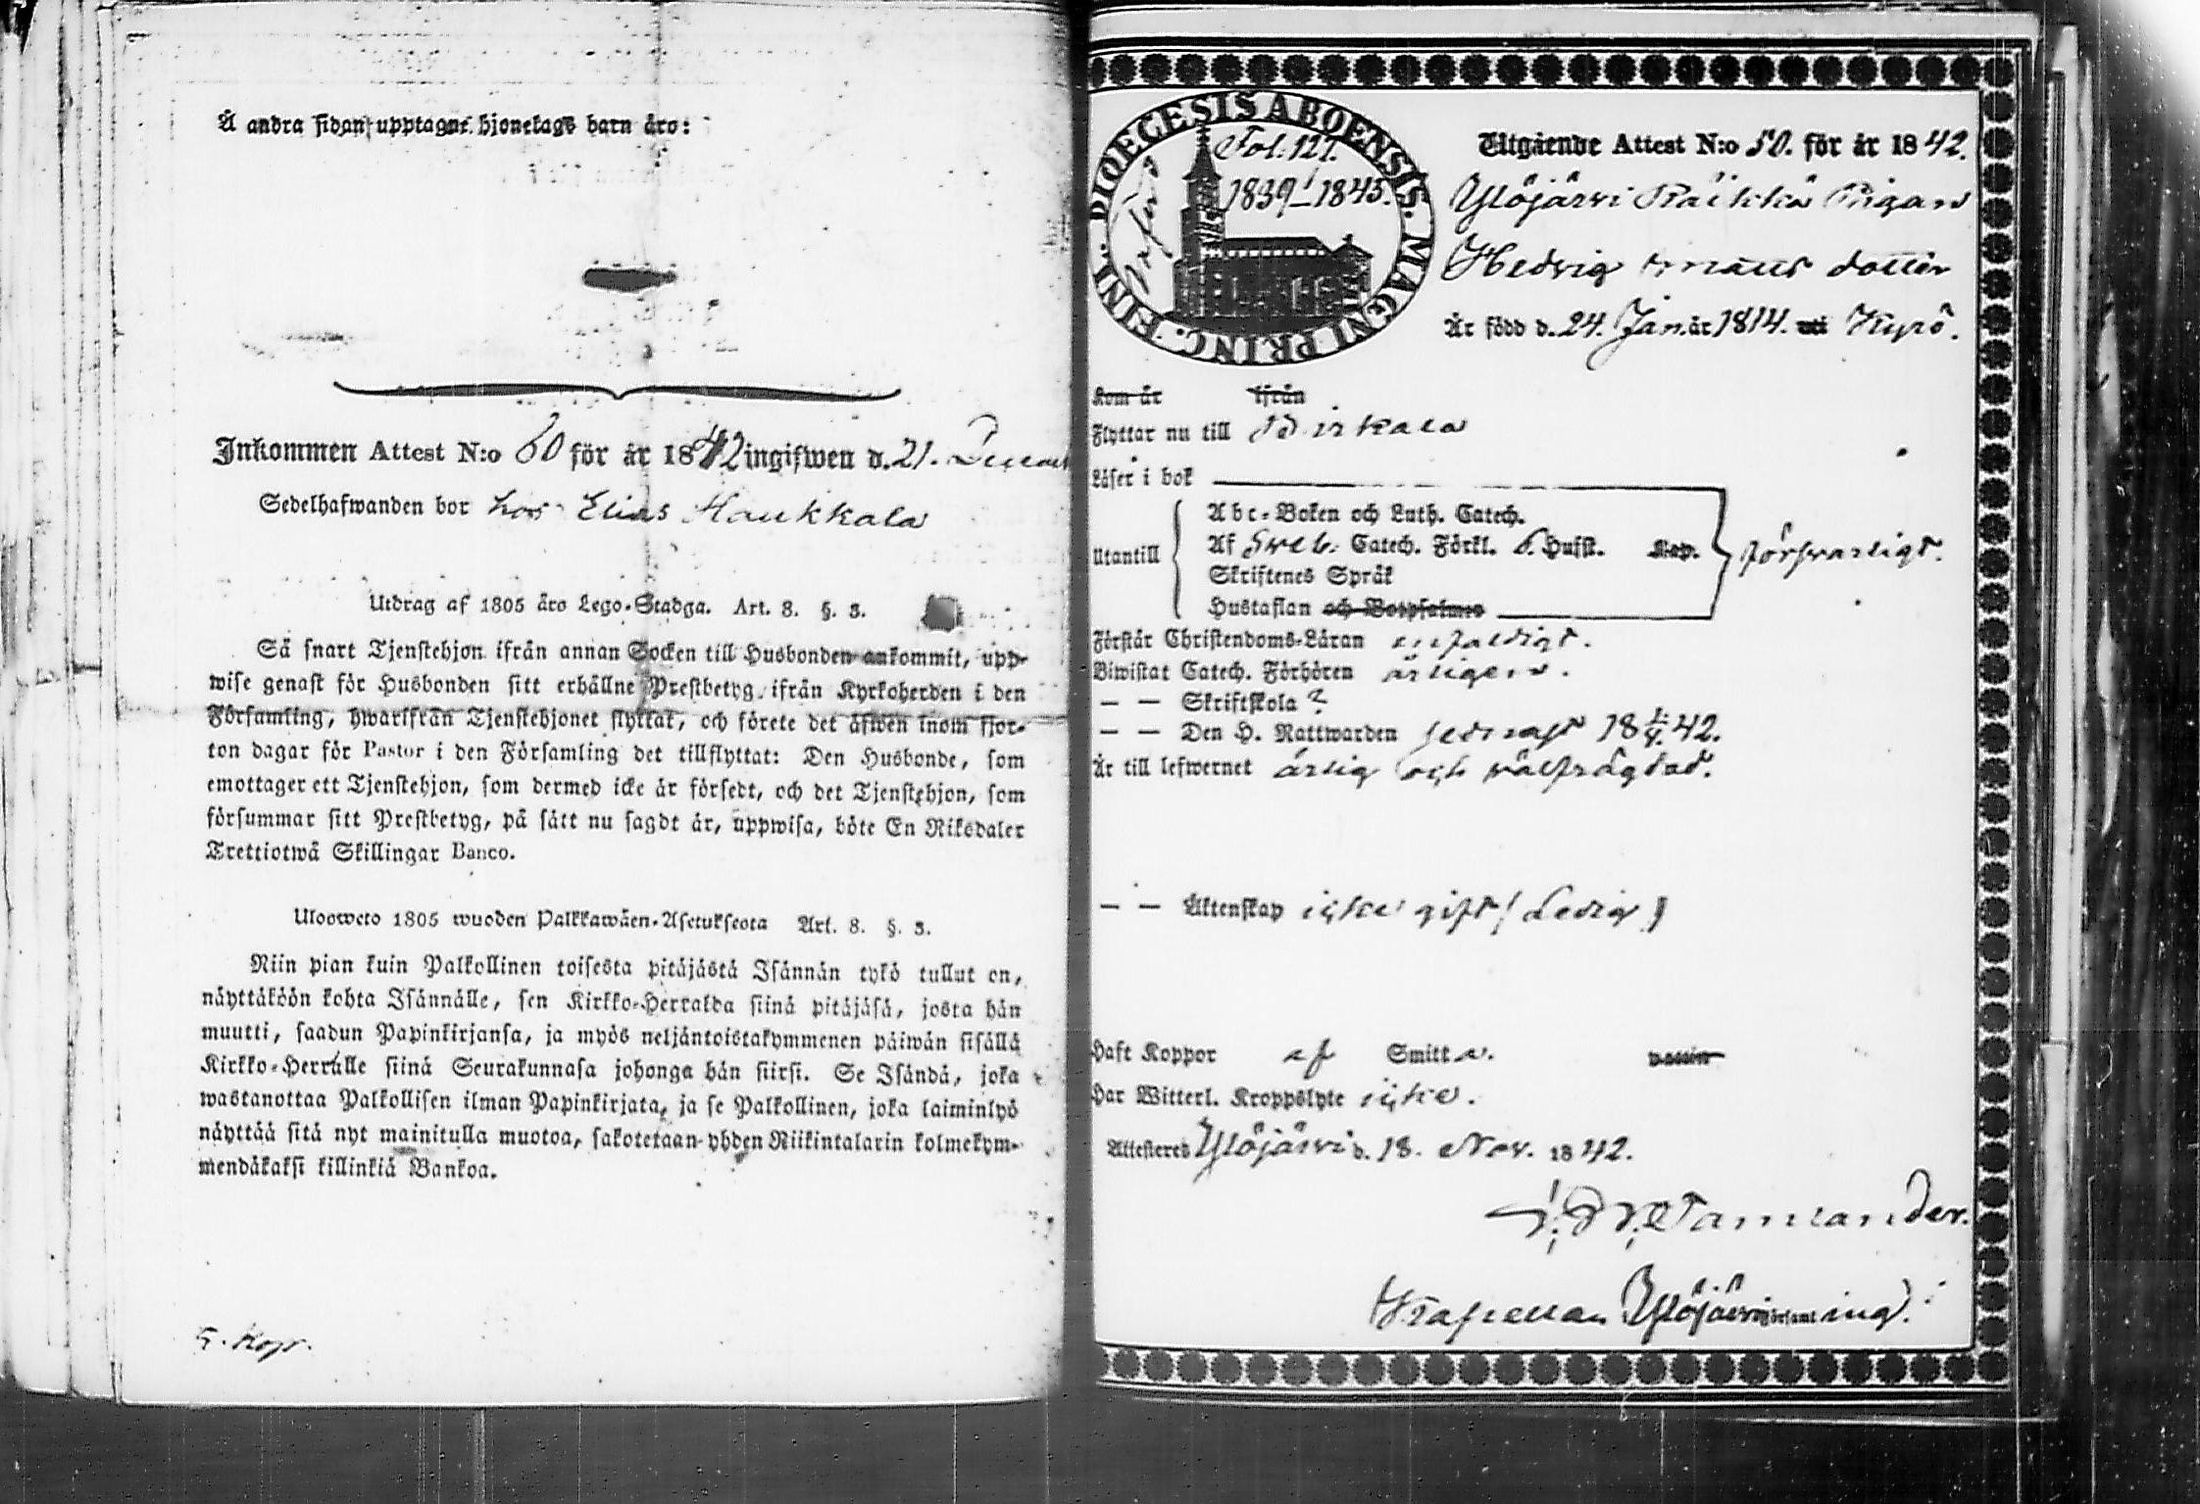 Å andra sidan upptagne hjonelags barn äro:
Inkommen Attest N:o 60 för år 1842 ingifwen d. 21. Decemb
Sedelhafwanden bor hos Elias Haukkala
Utdrag af 1805 års Lego-Stadga. Art. 8. §. 3.
Så snart Tjenstehjon ifrån annan Socken till Husbonden ankommit, upp-
wise genast för Husbonden sitt erhållne Prestbetyg ifrån Kyrkoherden i den
Församling, hwarifrån Tjenstehjonet flyttat, och förete det äfwen inom fjor-
ton dagar för Pastor i den Församling det tillflyttat: Den Husbonde, som
emottager ett Tjenstehjon, som dermed icke är försedt, och det Tjenstehjon, som
försummar sitt Prestbetyg, på sätt nu sagdt är, uppwisa, böte En Riksdaler
Trettiotwå Skillingar Banco.
Ulosweto 1805 wuoden Palkkawäen-Asetuksesta Art. 8. §. 3.
Niin pian kuin Palkollinen toisesta pitäjästä Isännän tykö tullut on,
näyttäköön kohta Isännälle, sen Kirkko-Herralda siinä pitäjäsä, josta hän
muutti, saadun Papinkirjansa, ja myös neljäntoistakymmenen päiwän sisällä
Kirkko-Herralle siinä Seurakunnasa johonga hän siirsi. Se Isändä, joka
wastanottaa Palkollisen ilman Papinkirjata, ja se Palkollinen, joka laiminlyö
näyttää sitä nyt mainitulla muotoa, sakotetaan yhden Riikintalarin kolmekym-
mendäkaksi killinkiä Bankoa.
5. Kop.
FINL. DIOECESIS ABOENSIS. MAGNI PRINC.
Fol. 127.
1839-1845.
Utgående Attest N:o 50. för år 1842.
Ylöjärvi Räikkä Pigan
Hedvig dotter
Är född d. 24. Jan. år 1814. uti Kyrö.
Kom år ifrån
Flyttar nu till Birkala
Läser i bok
Utantill
Abc-Boken och Luth. Catech.
Af Sveb. Catech. Förkl. 6. Hufst. Kap.
Skriftenes Språk
Hustaflan och Botpsalmes
försvarligt.
Förstår Christendoms-Läran enfaldigt.
Biwistat Catech. Förhören årligen.
— — Skriftskola ?
— — Den H. Nattwarden sednast 18 42.
Är till lefwernet ärlig och välfrägdad.
— — Äktenskap icke gift (Ledig)
Haft Koppor af Smitta. vaccin
Har Witterl. Kroppslyte icke.
Attesteras Ylöjärvi d. 18. Nov. 1842.
Tamlander.
Kapellan Ylöjärvi församling.